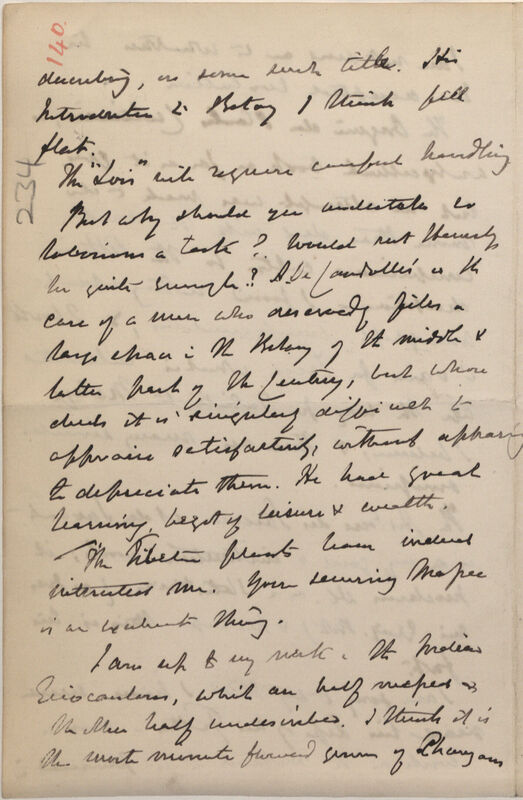 140.
234
describing, or some such title. His
Introduction to Botany I think fell
flat.
The "Lois" will require careful handling
But why should you undertake so
laborious a task? Would not Hemsley
be quite enough? A. De Candolle's is the
case of a man who deservedly fills a
large space in the Botany of the middle &
latter part of the Century, but whose
deeds it is singularly difficult to
appraise satisfactorily, without appearing
to depreciate them. He had great
learning, begot of leisure & wealth.
The Tibetan plants have indeed
interested me. Your securing
is an excellent thing.
I am up to my neck in the Indian
Eriocaulons, which are half &
the other half undescribed. I think it is
the most minute flowered genus of